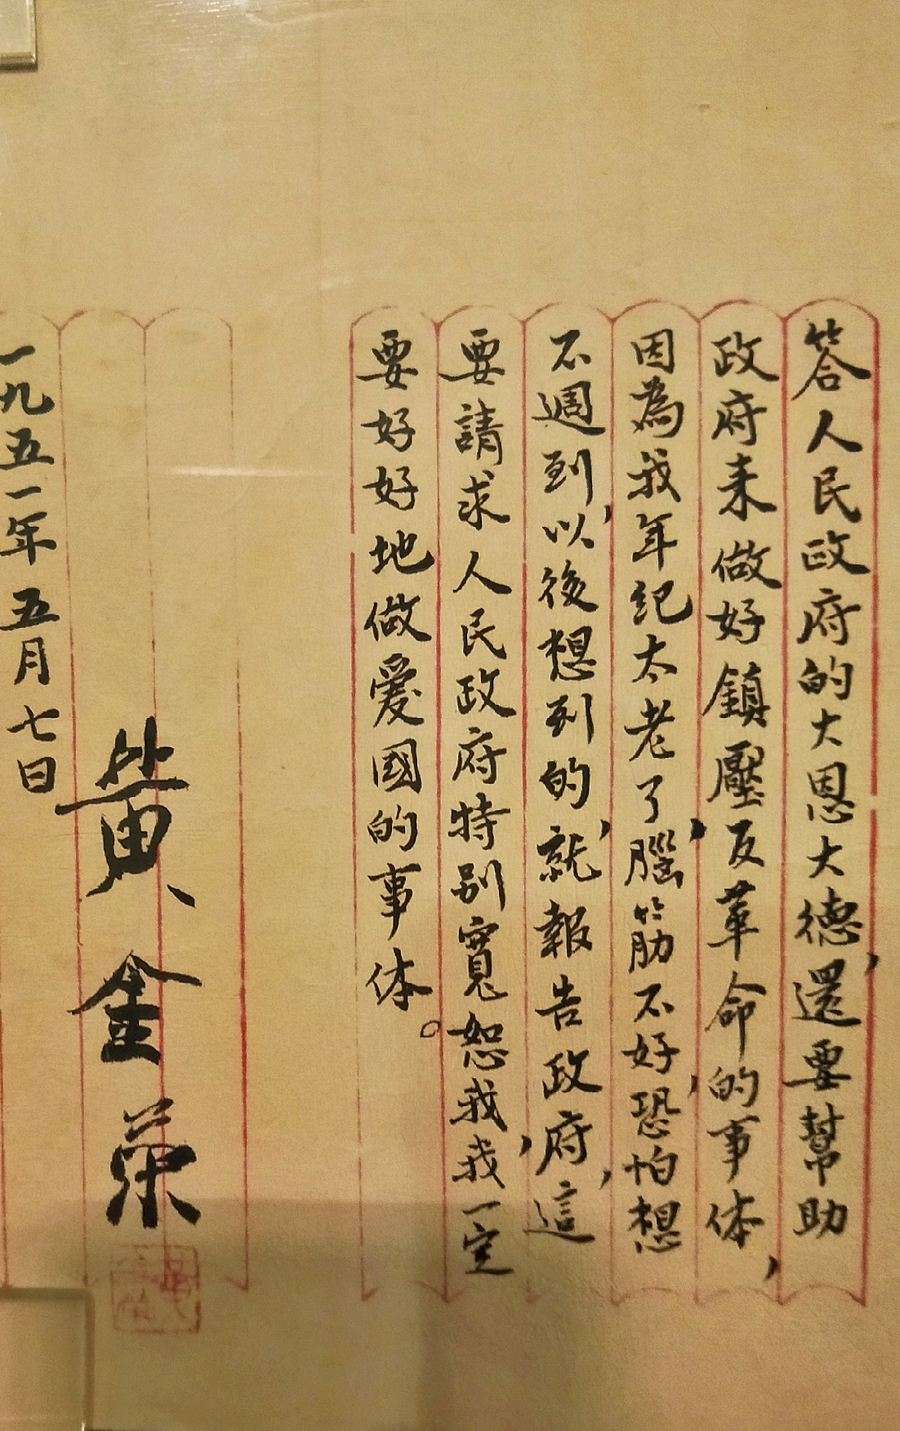 答人民政府的大恩大德，還要幫助
政府来做好鎮壓反革命的事体，
因為我年纪太老了，腦筋不好，恐怕想
不週到，以後想到的，就報告政府，這
要請求人民政府特别寬恕我，我一定
要好好地做愛國的事体。
黄金荣
一九五一年五月七日